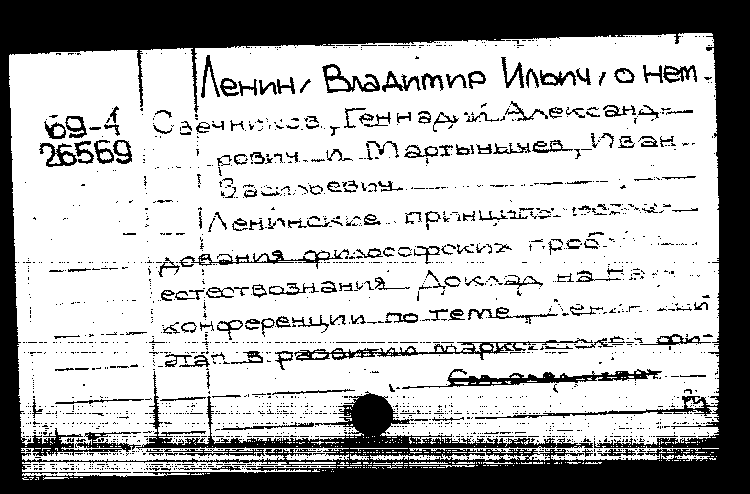 Ленин, Владимир Ильич, о нем.
69-4
26569
Свечников, Геннадий Александ-
рович и Мартынычев, Иван
Васильевич
Ленинские принципы иссле-
дования философских проб
естествознания. Доклад на
конференции по теме
этап в развитии марксистской фи-